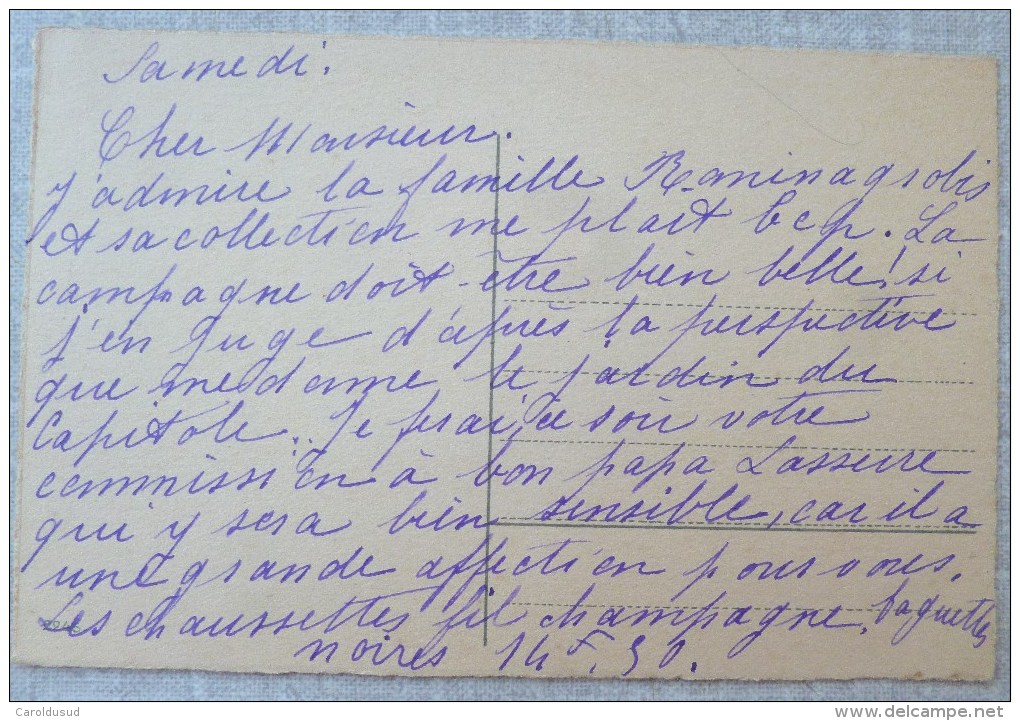 Samedi.
Cher Monsieur.
J'admire la famille Raminagrobis
et sa collection me plait bcp. La
campagne doit-être bien belle! si
j'en juge d'après la perspective
que me donne le jardin du
Capitole.. Je ferai ce soir votre
commission à bon papa Lasserre
qui y sera bien sensible, car il a
une grande affection pour vous.
Les chaussettes fil champagne, baguettes
noires 14F,50.
Caroldusud
www.delcampe.net